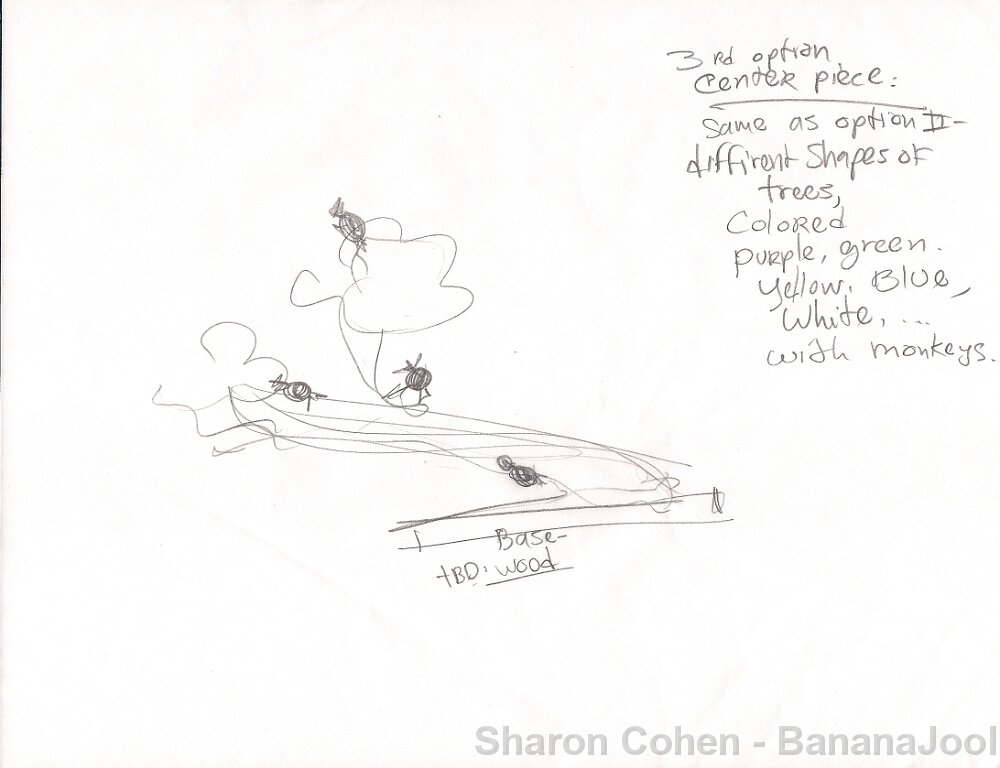 3rd option
Center piece:
Same as option II-
diffirent Shapes of
trees,
Colored
purple, green.
Yellow, Blue,
White, ...
with monkeys.
Base-
tBD: wood
Sharon Cohen - BananaJool